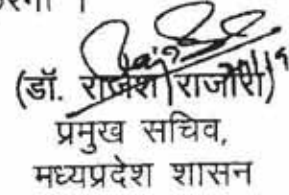 करेगा ।
(डॉ. राजेश राजौरा)
प्रमुख सचिव,
मध्यप्रदेश शासन